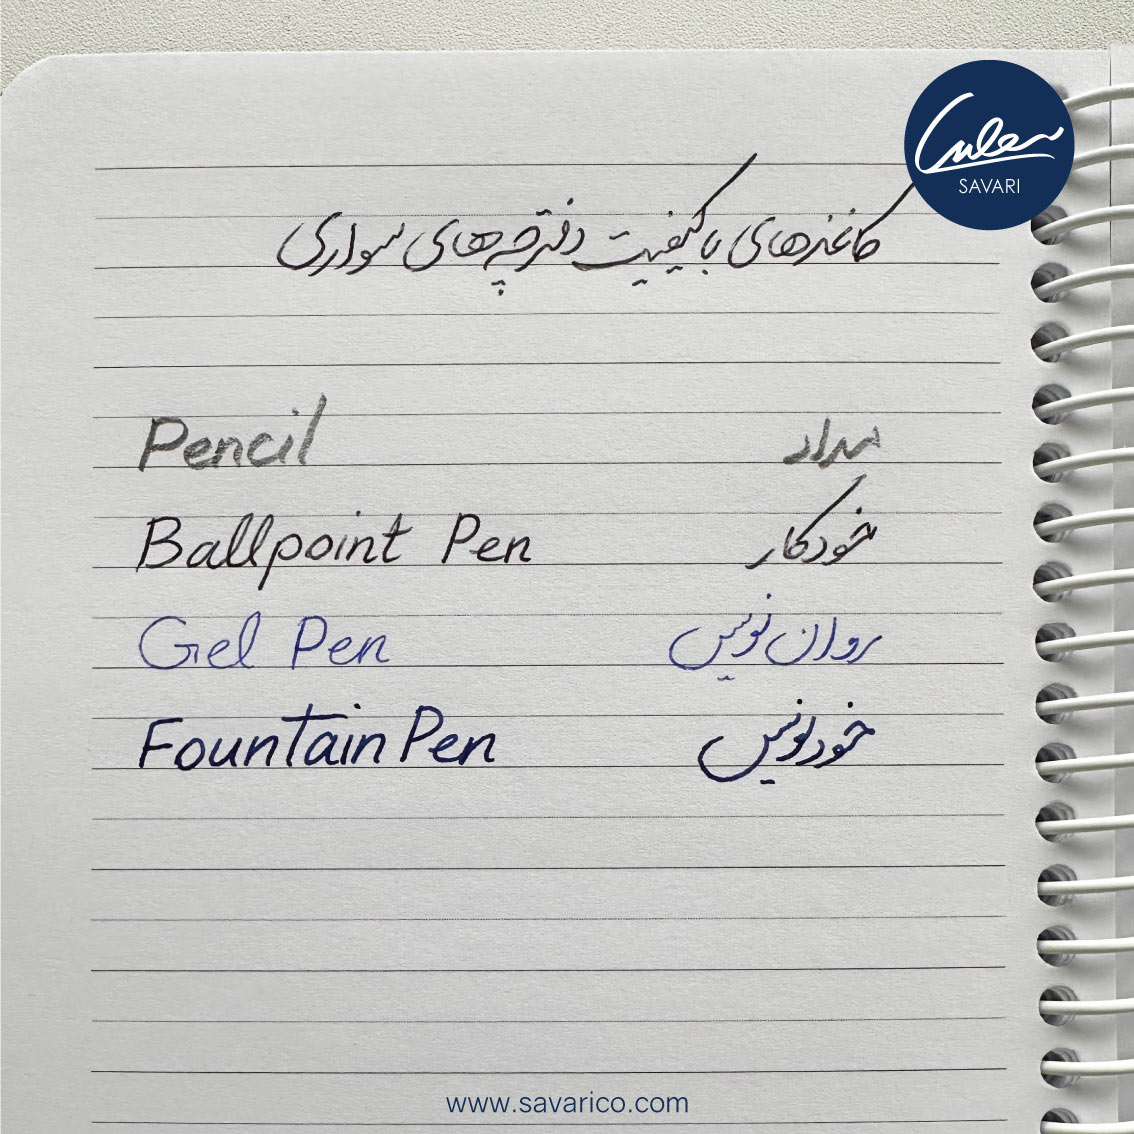 سواری
SAVARI
کاغذهای باکیفیت دفترچه‌های سواری
Pencil مداد
Ballpoint Pen خودکار
Gel Pen روان نویس
Fountain Pen خودنویس
www.savarico.com